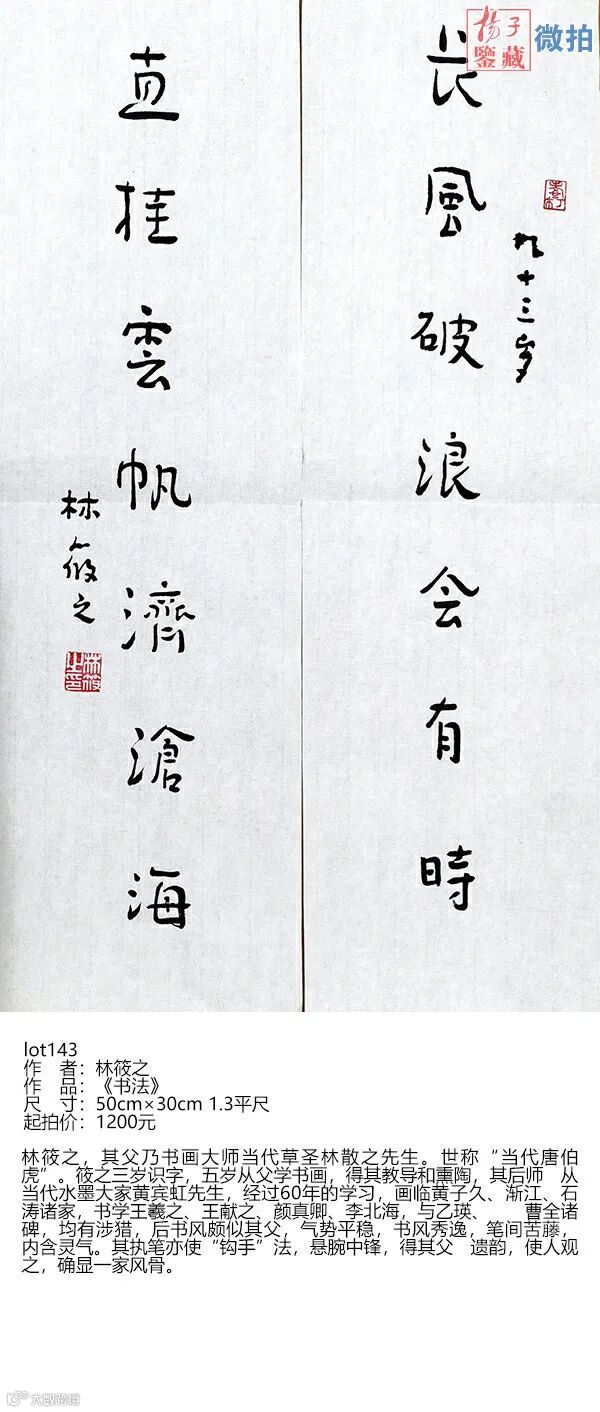 杨子
鑒藏
微拍
长風破浪会有時
九十三岁
直挂雲帆濟滄海
林筱之
林筱
之印
lot143
作 者：林筱之
作 品：《书法》
尺 寸：50cm×30cm 1.3平尺
起拍价：1200元
林筱之，其父乃书画大师当代草圣林散之先生。世称“当代唐伯
虎”。筱之三岁识字，五岁从父学书画，得其教导和熏陶，其后师 从
当代水墨大家黄宾虹先生，经过60年的学习，画临黄子久、渐江、石
涛诸家，书学王羲之、王献之、颜真卿、李北海，与乙瑛、 曹全诸
碑，均有涉猎，后书风颇似其父，气势平稳，书风秀逸，笔间苦藤，
内含灵气。其执笔亦使“钩手”法，悬腕中锋，得其父 遗韵，使人观
之，确显一家风骨。
大数跨境